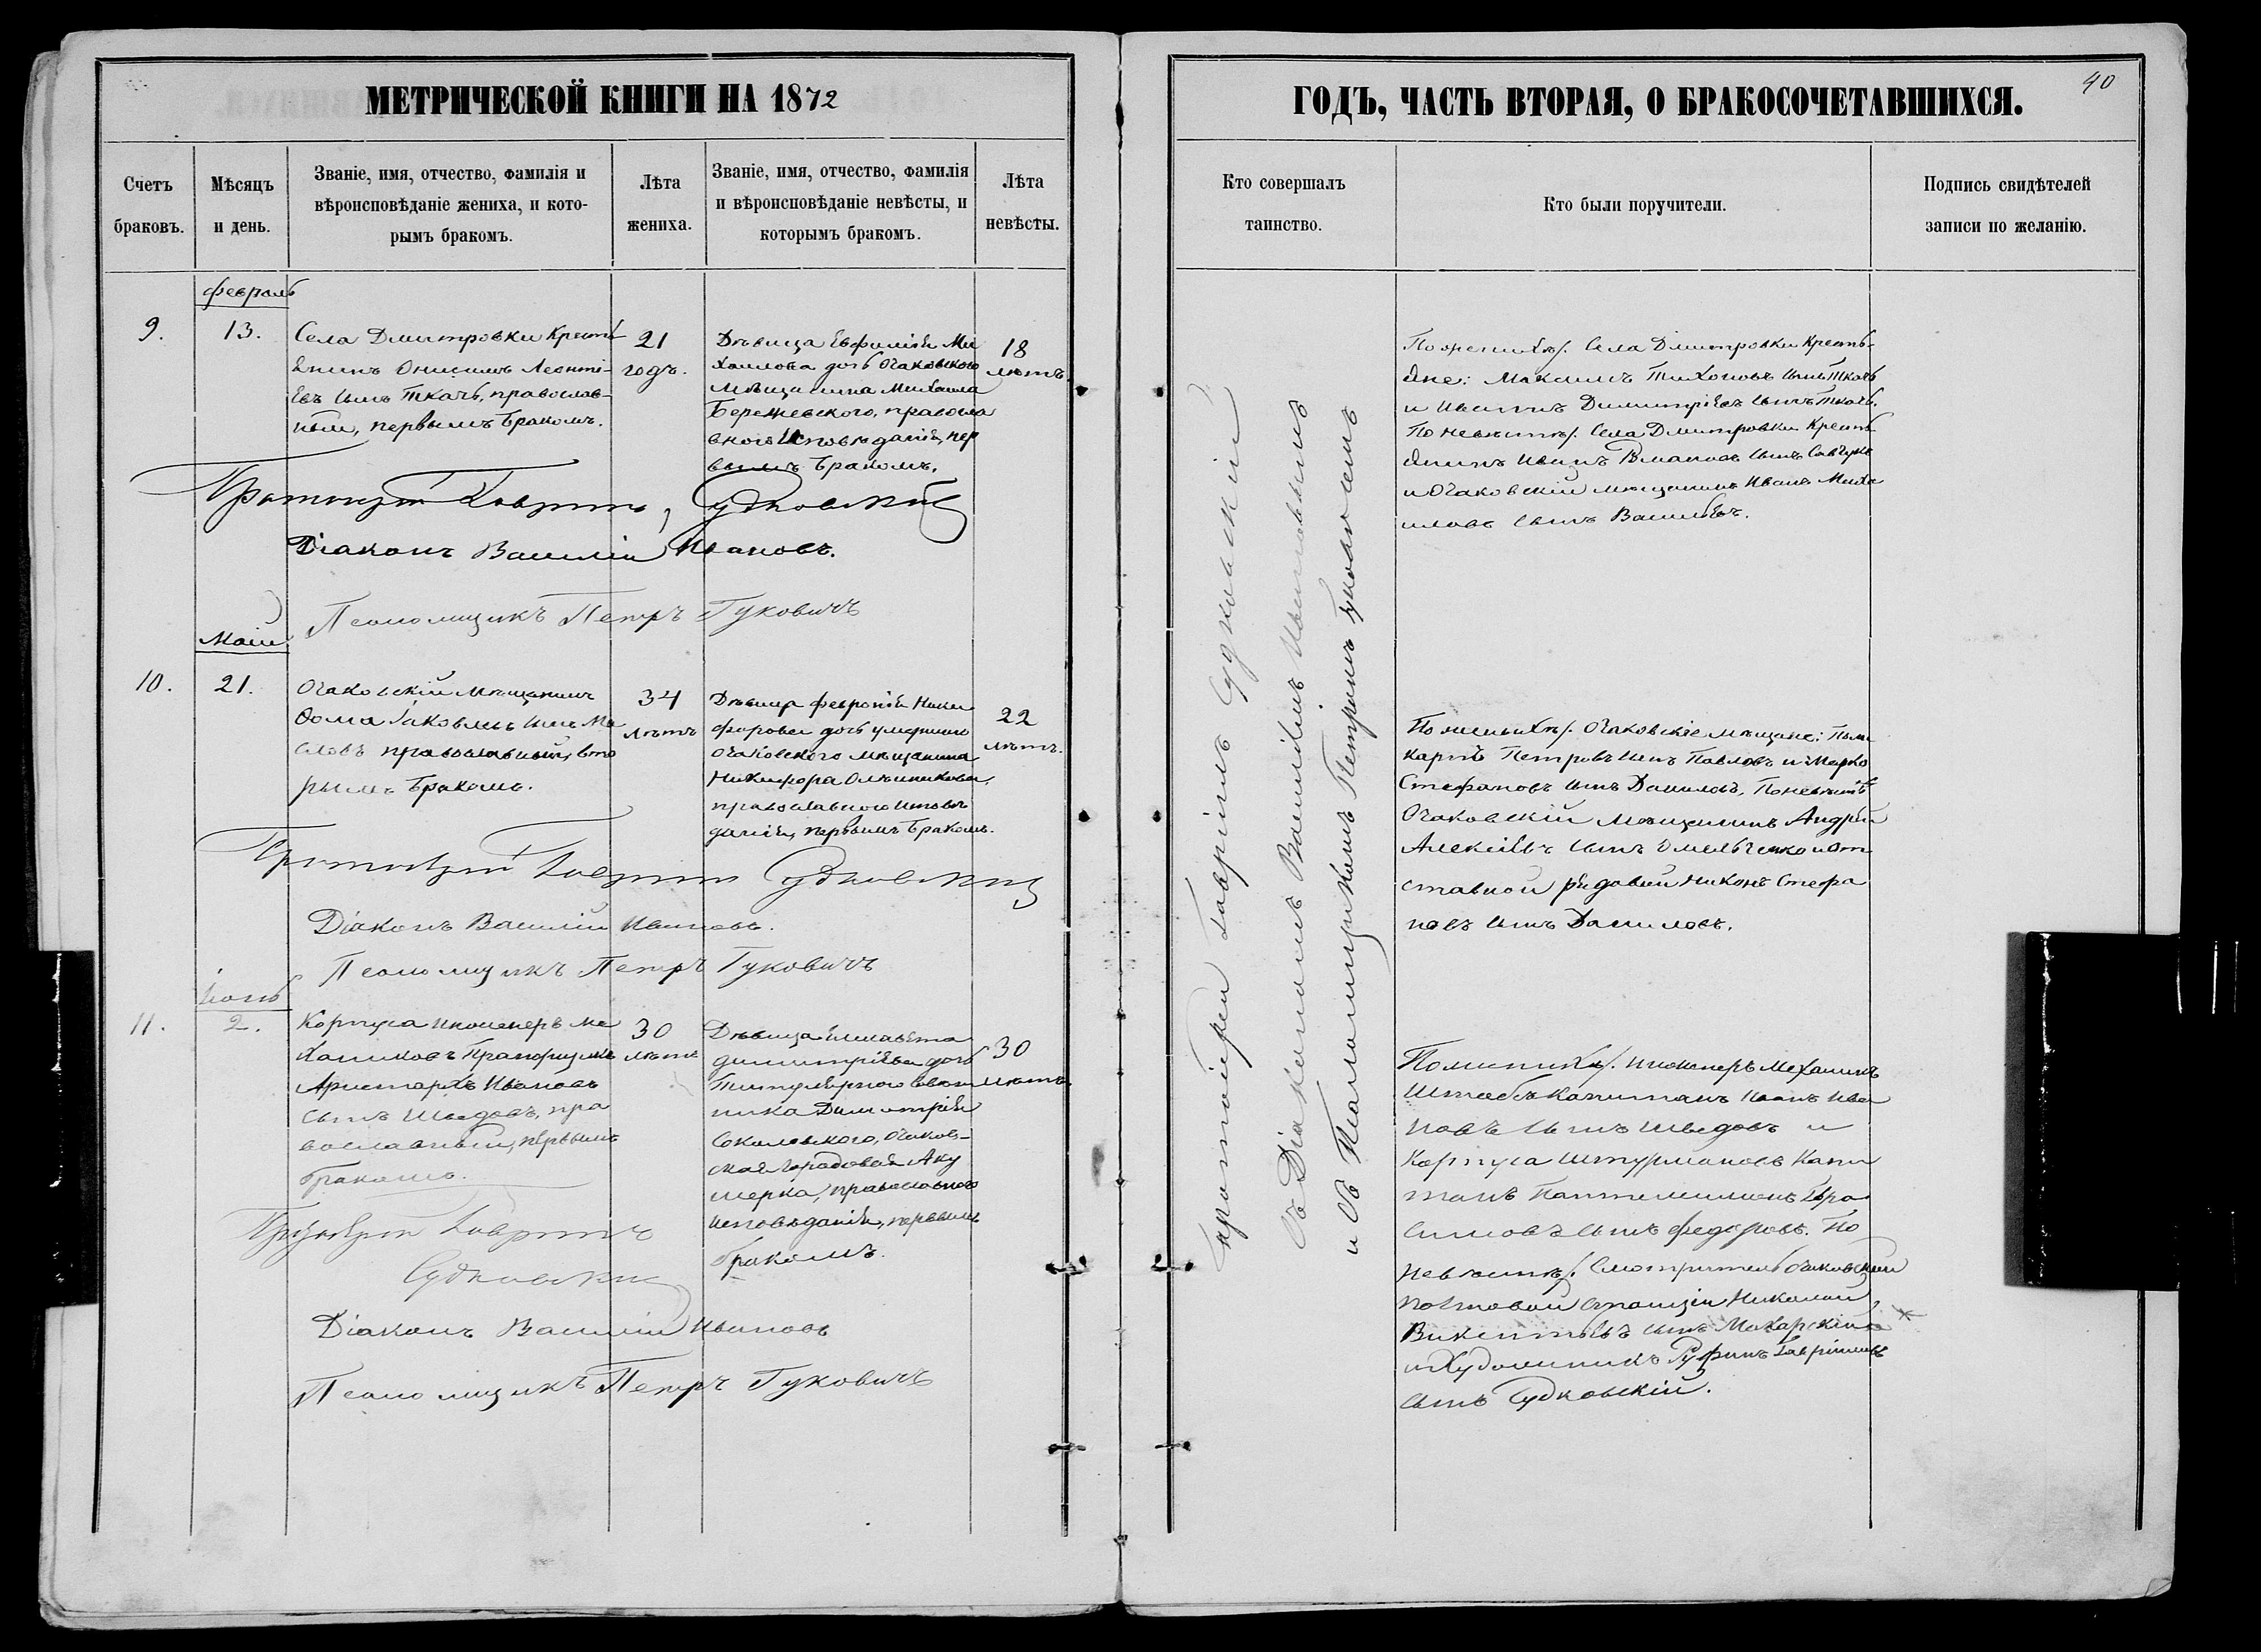 МЕТРИЧЕСКОЙ КНИГИ НА 1872
Счетъ браковъ.
Мѣсяцъ и день.
Званіе, имя, отчество, фамилія и
вѣроисповѣданіе жениха, и кото-
рымъ бракомъ.
Лѣта жениха.
Званіе, имя, отчество, фамилія
и вѣроисповѣданіе невѣсты, и
которымъ бракомъ.
Лѣта невѣсты.
Февраль
9.
13.
Села Дмитровки Кресть
янинъ Онисимъ Леонті-
евъ сынъ Ткачъ, православ-
ный, первымъ бракомъ.
21
годъ.
Дѣвица Евфимія Ми
хаилова дочь Очаковского
мѣщанина Михаила
Бережевского, православ
вного исповѣданія, пер
вымъ бракомъ.
18
лѣтъ
Протоіерей Гавріилъ Судковскій
Діаконъ Василій Ивановъ.
Псаломщикъ Петръ Гуковичъ
Май
10.
21.
Очаковскій мѣщанинъ
Фома Іаковлевъ сынъ Ма
словъ православный, вто
рымъ бракомъ.
34
лѣтъ
Дѣвица Февронія Ники
форова дочь умершаго
Очаковского мѣщанина
Никифора Олѣйникова,
православного исповѣ
данія, первымъ бракомъ.
22
лѣтъ.
Протоіерей Гавріилъ Судковскій
Діаконъ Василій Ивановъ.
Псаломщикъ Петръ Гуковичъ
Іюль
11.
2.
Корпуса инженеръ ме
ханиковъ Прапорщикъ
Аристархъ Ивановъ
сынъ Шведовъ, пра
вославный, первымъ
бракомъ.
30
лѣтъ
Дѣвица Елисавета
Димитріева дочь
Титулярного совѣт
ника Димитрія
Соколовского, Очаков-
ская Городовая Аку
шерка, православного
исповѣданія, первымъ
бракомъ.
30
лѣтъ.
Протоіерей Гавріилъ
Судковскій
Діаконъ Василій Ивановъ
Псаломщикъ Петръ Гуковичъ
40
ГОДЪ, ЧАСТЬ ВТОРАЯ, О БРАКОСОЧЕТАВШИХСЯ.
Кто совершалъ таинство.
Кто были поручители.
Подпись свидѣтелей
записи по желанію.
Протоіерей Гавріилъ Судковскій
съ Діакономъ Василіемъ Ивановымъ
и съ Псаломщикомъ Петромъ Гуковичемъ
По женихѣ: Села Димитровки Кресть-
яне: Максимъ Тихоновъ сынъ Ткачъ
и Иванъ Димитріевъ сынъ Ткачъ.
По невѣстѣ: Села Дмитровки Кресть
янинъ Иванъ Романовъ сынъ Савчукъ
и Очаковскій мѣщанинъ Иванъ Миха
иловъ сынъ
По женихѣ: Очаковскіе мѣщане: Поли
карпъ Петровъ сынъ Павловъ и Марко
Стефановъ сынъ Даниловъ. По невѣстѣ
Очаковскій мѣщанинъ Андрей
Алексіевъ сынъ Омельченко и от
ставной рядовой Никонъ Стефа
новъ сынъ Даниловъ.
По женихѣ: инженеръ механикъ
Штабсъ Капитанъ Иванъ Ива
новъ сынъ Шведовъ и
Корпуса Штурмановъ Капи
танъ Пантелеимонъ Гера
симовъ сынъ Федоровъ. По
невѣстѣ: Смотритель Очаковской
почтовой станціи Николай
Викентіевъ сынъ Махарскій
и Художникъ Руфинъ Гавріиловъ
сынъ Судковскій.